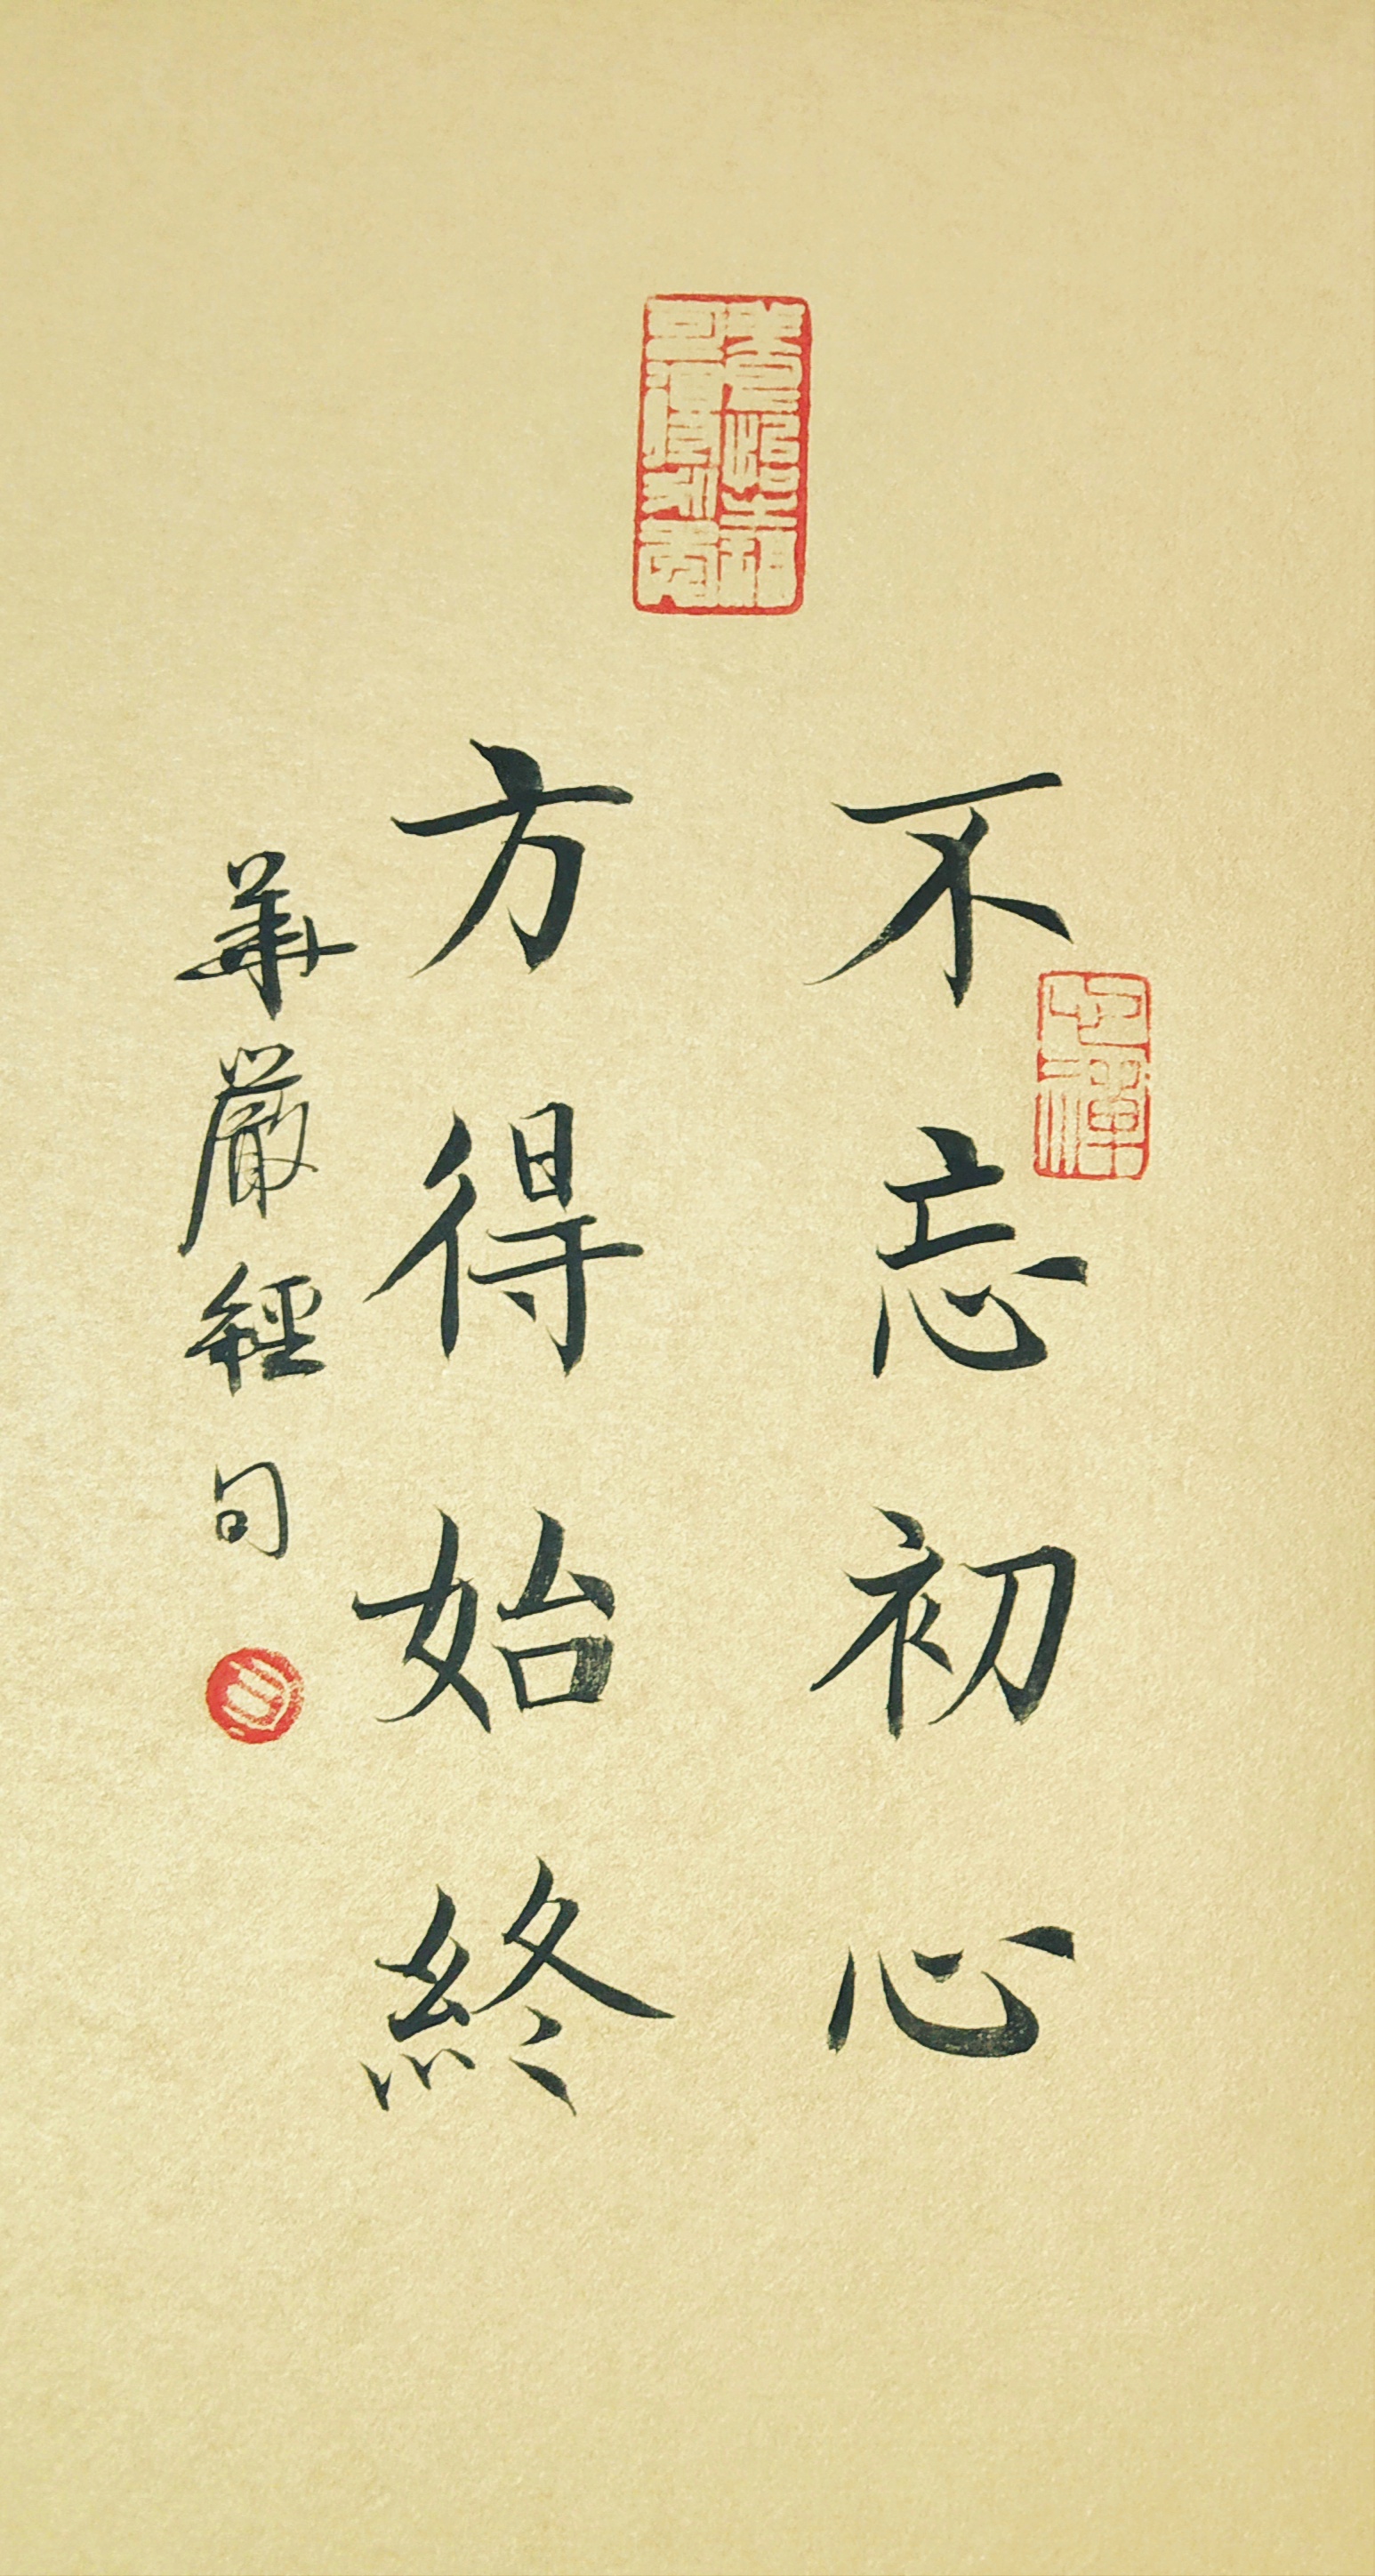 不忘初心
方得始終
華嚴經句